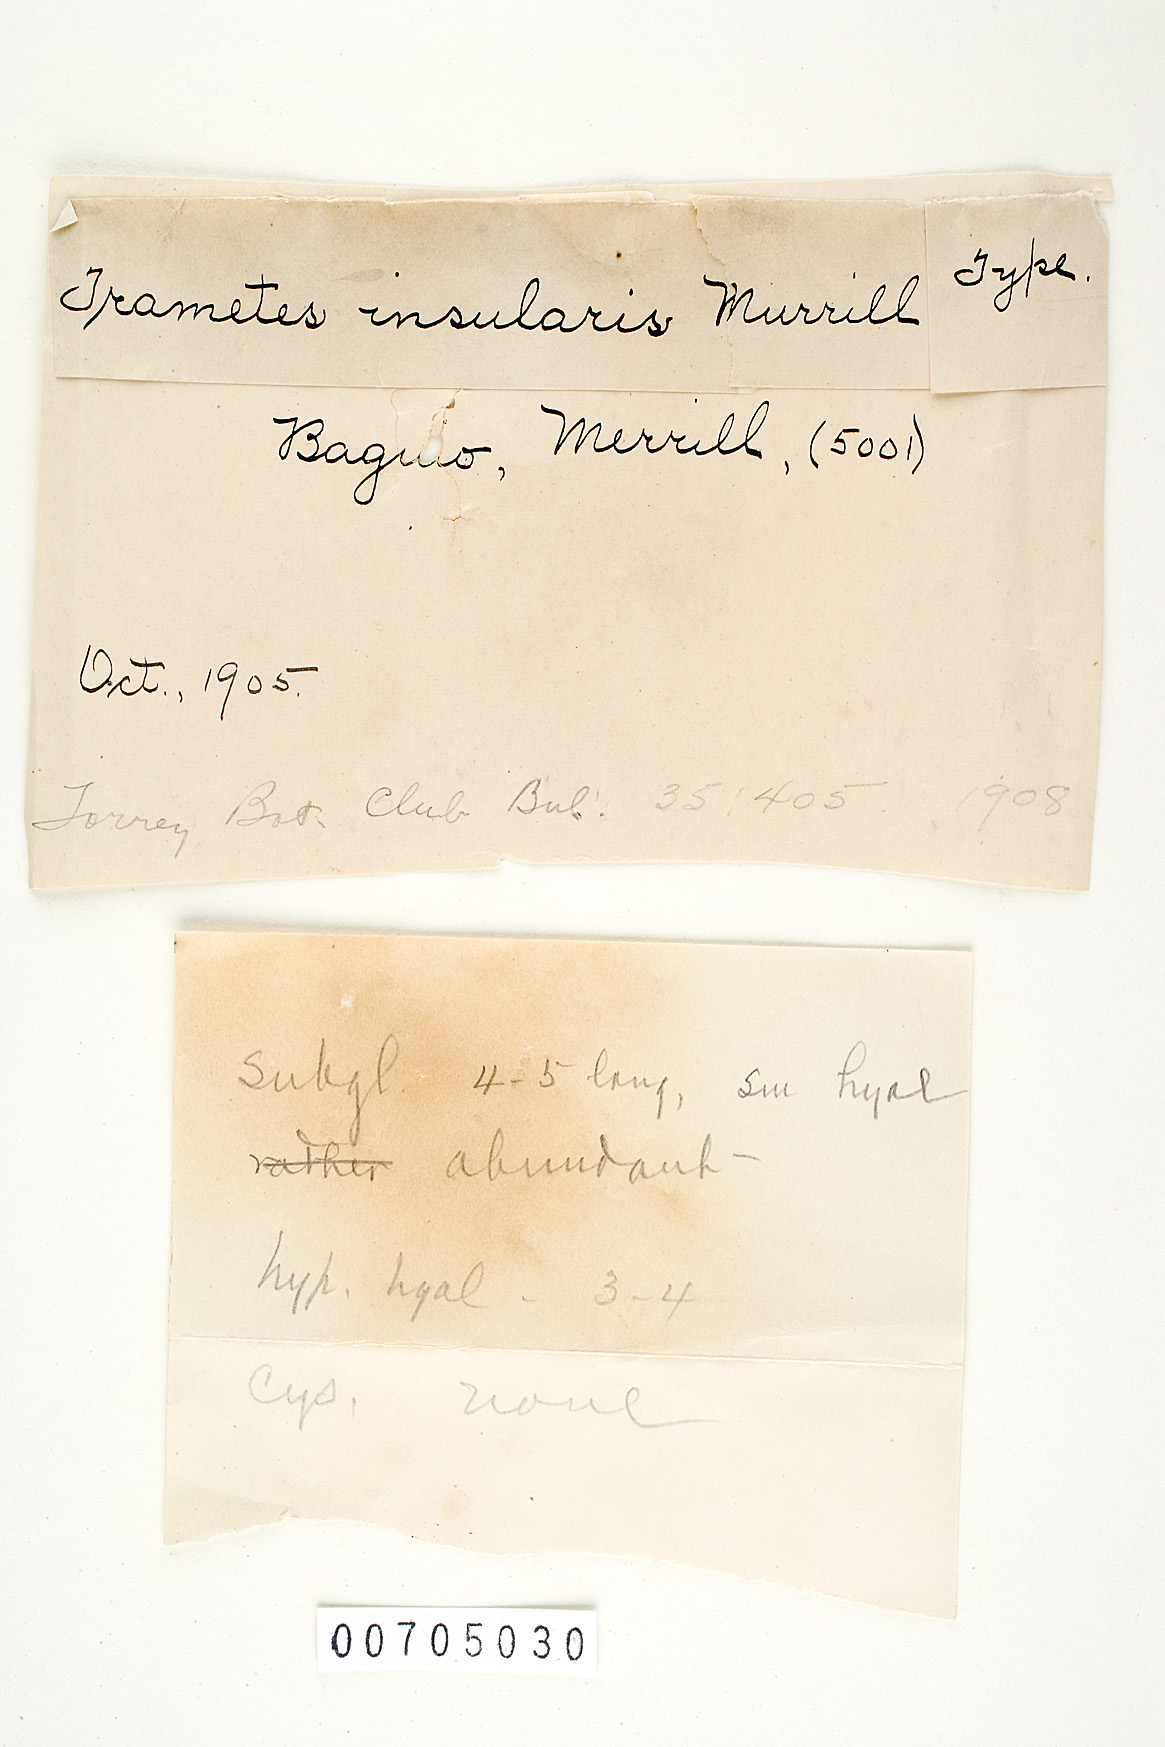 Trametes insularis Murrill Type.
Baguio, Merrill, (5001)
Oct., 1905.
Torrey Bot. Club Bul. 35:405 1908
Subgl. 4-5 long, sm hyal
rather abundant-
hyp. hyal - 3-4
Cys. none
00705030